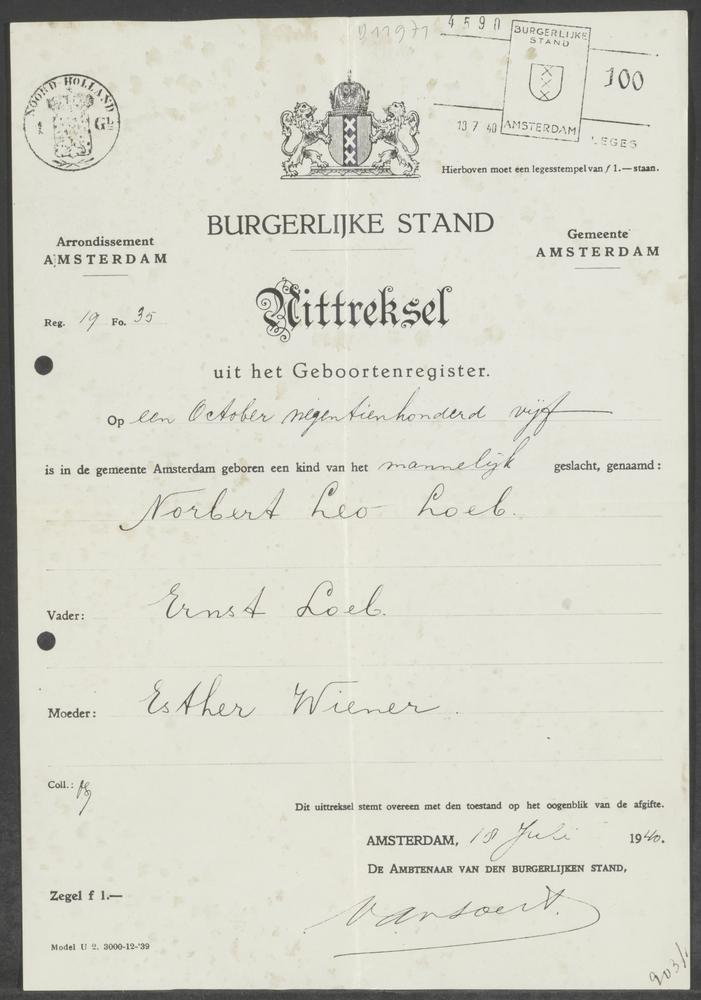 D11971
4590
BURGERLIJKE
STAND
100
AMSTERDAM
LEGES
NOORD-HOLLAND
1 GL
Hierboven moet een legesstempel van f 1.— staan.
BURGERLIJKE STAND
Arrondissement
AMSTERDAM
Gemeente
AMSTERDAM
Uittreksel
Reg. 19 Fo. 35
uit het Geboortenregister.
Op een October negentienhonderd vijf
is in de gemeente Amsterdam geboren een kind van het mannelijk geslacht, genaamd:
Norbert Leo Loeb.
Vader: Ernst Loeb.
Moeder: Esther Wiener.
Coll.:
Dit uittreksel stemt overeen met den toestand op het oogenblik van de afgifte.
AMSTERDAM, 18 Juli 1940.
DE AMBTENAAR VAN DEN BURGERLIJKEN STAND,
Zegel f 1.—
Model U 2. 3000-12-'39